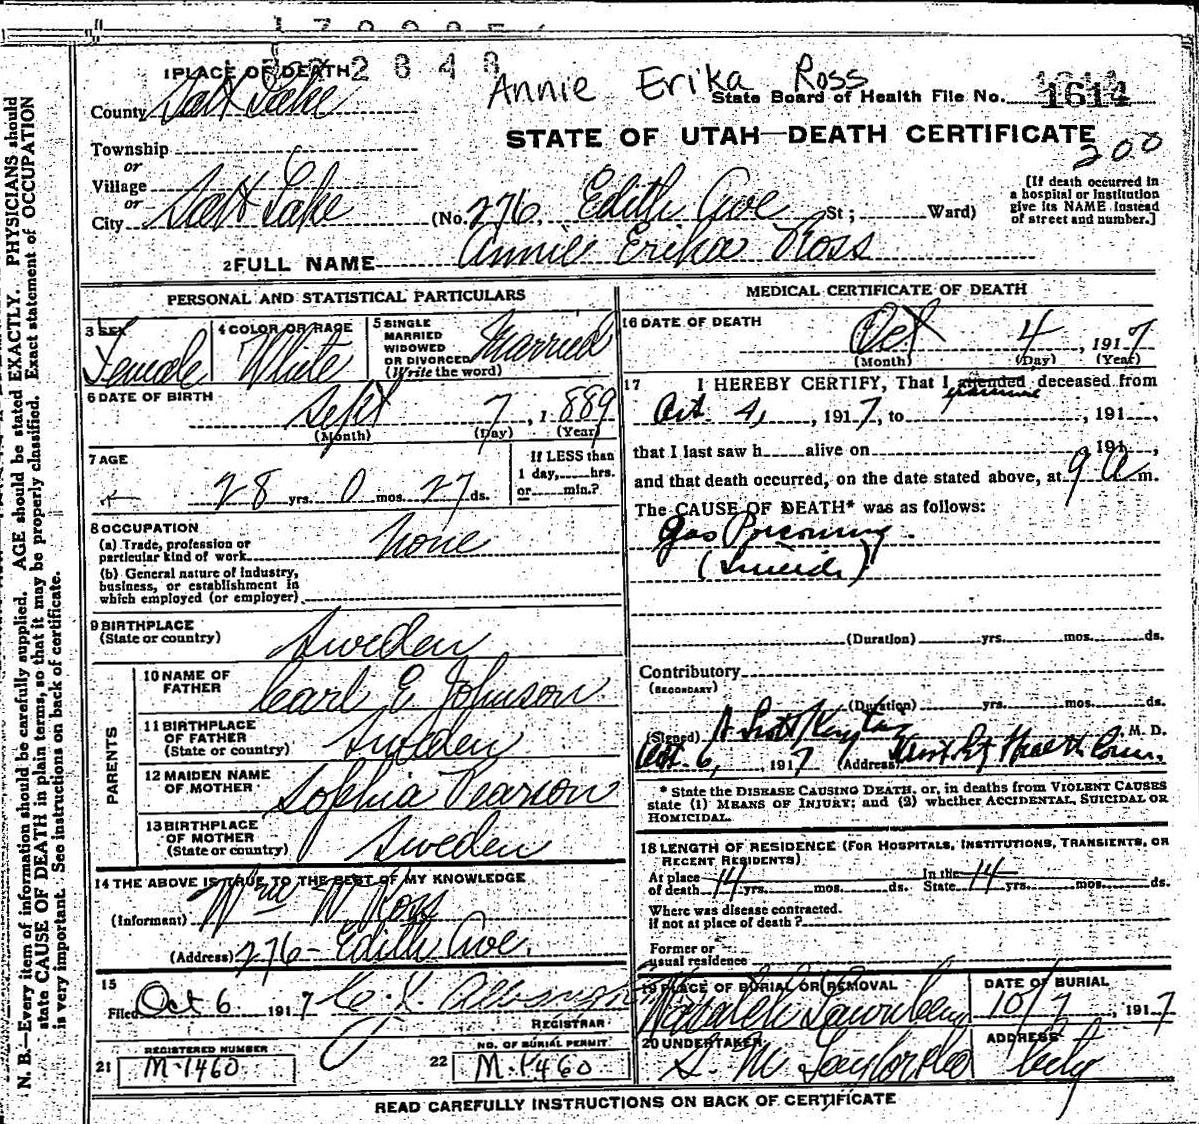 2 8 4 8
1 PLACE OF DEATH
Annie Erika Ross
County Salt Lake
State Board of Health File No. 1614
STATE OF UTAH—DEATH CERTIFICATE
200
Township
or
Village
or
City Salt Lake (No. 276 Edith Ave St; Ward)
[If death occurred in
a hospital or institution
give its NAME instead
of street and number.]
2 FULL NAME Annie Erika Ross
PERSONAL AND STATISTICAL PARTICULARS
3 SEX
Female
4 COLOR OR RACE
White
5 SINGLE
MARRIED
WIDOWED
OR DIVORCED
(Write the word)
Married
6 DATE OF BIRTH
Sept 7, 1889
(Month) (Day) (Year)
7 AGE
28 yrs. 0 mos. 27 ds.
If LESS than
1 day, hrs.
or min.?
8 OCCUPATION
(a) Trade, profession or
particular kind of work None
(b) General nature of industry,
business, or establishment in
which employed (or employer)
9 BIRTHPLACE
(State or country) Sweden
PARENTS
10 NAME OF
FATHER Carl E Johnson
11 BIRTHPLACE
OF FATHER
(State or country) Sweden
12 MAIDEN NAME
OF MOTHER Sophia Pearson
13 BIRTHPLACE
OF MOTHER
(State or country) Sweden
14 THE ABOVE IS TRUE TO THE BEST OF MY KNOWLEDGE
(Informant) Wm W Ross
(Address) 276 - Edith Ave.
15
Filed Oct 6 1917
REGISTRAR
21 REGISTERED NUMBER
M-1460
22 NO. OF BURIAL PERMIT
M-1460
MEDICAL CERTIFICATE OF DEATH
16 DATE OF DEATH
Oct 4, 1917
(Month) (Day) (Year)
17 I HEREBY CERTIFY, That I attended deceased from
examined
Oct. 4, 1917, to , 191 ,
that I last saw h alive on , 191 ,
and that death occurred, on the date stated above, at 9 A m.
The CAUSE OF DEATH* was as follows:
Gas Poisoning.
(Suicide)
(Duration) yrs. mos. ds.
Contributory
(SECONDARY)
(Duration) yrs. mos. ds.
(Signed) M. D.
Oct. 6, 1917 (Address)
* State the DISEASE CAUSING DEATH, or, in deaths from VIOLENT CAUSES
state (1) MEANS OF INJURY; and (2) whether ACCIDENTAL, SUICIDAL OR
HOMICIDAL.
18 LENGTH OF RESIDENCE (FOR HOSPITALS, INSTITUTIONS, TRANSIENTS, OR
RECENT RESIDENTS)
At place
of death 14 yrs. mos. ds.
In the
State 14 yrs. mos. ds.
Where was disease contracted.
If not at place of death?
Former or
usual residence
19 PLACE OF BURIAL OR REMOVAL
Wasatch Lawn Cem
DATE OF BURIAL
10/7, 1917
20 UNDERTAKER
S. M. Taylor &
ADDRESS
City
READ CAREFULLY INSTRUCTIONS ON BACK OF CERTIFICATE
N. B.—Every item of information should be carefully supplied. AGE should be stated EXACTLY. PHYSICIANS should
state CAUSE OF DEATH in plain terms, so that it may be properly classified. Exact statement of OCCUPATION
is very important. See instructions on back of certificate.